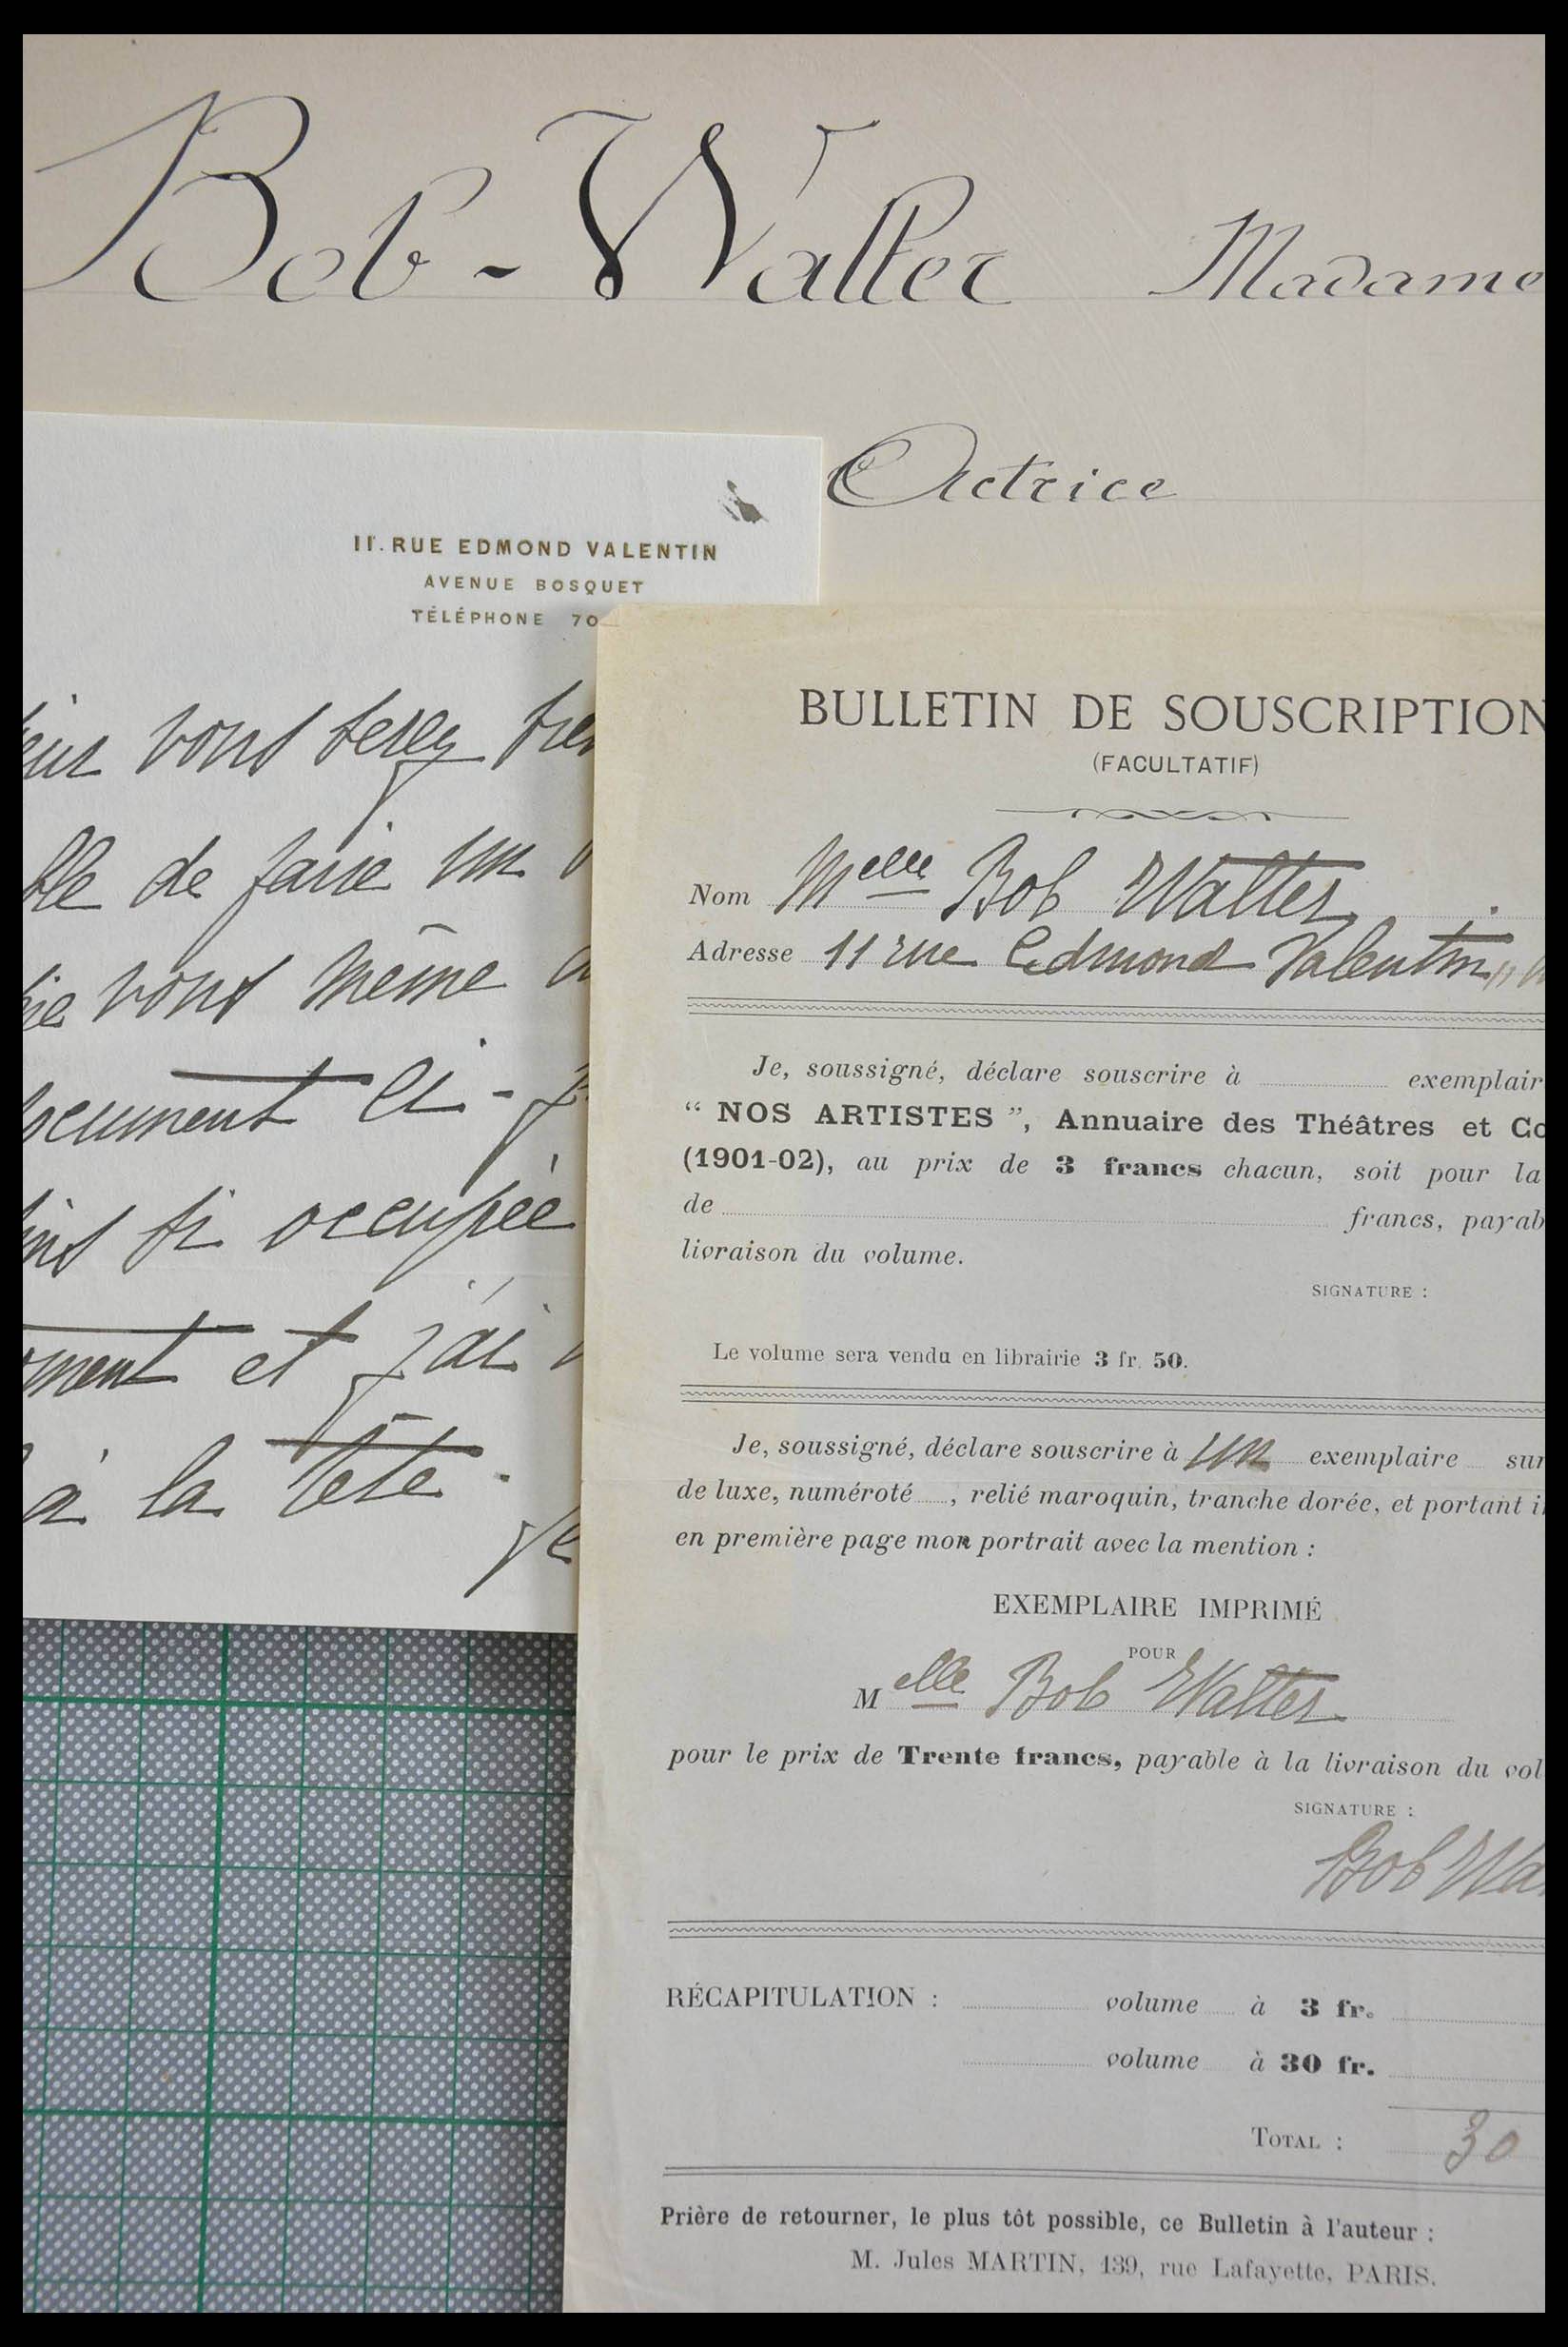 Bob-Walter Madame
Actrice
11. RUE EDMOND VALENTIN
AVENUE BOSQUET
TÉLÉPHONE 70
vous serez
de faire un
vous même
ci-
si occupée
et j'ai
à la tête.
BULLETIN DE SOUSCRIPTION
(FACULTATIF)
Nom Melle Bob Walter
Adresse 11 rue Edmond Valentin
Je, soussigné, déclare souscrire à exemplair
“ NOS ARTISTES ”, Annuaire des Théâtres et Co
(1901-02), au prix de 3 francs chacun, soit pour la
de francs, payab
livraison du volume.
SIGNATURE :
Le volume sera vendu en librairie 3 fr. 50.
Je, soussigné, déclare souscrire à un exemplaire sur
de luxe, numéroté , relié maroquin, tranche dorée, et portant i
en première page mon portrait avec la mention :
EXEMPLAIRE IMPRIMÉ
POUR
Melle Bob Walter
pour le prix de Trente francs, payable à la livraison du vol
SIGNATURE :
Bob Wa
RÉCAPITULATION : volume à 3 fr.
volume à 30 fr.
TOTAL : 30
Prière de retourner, le plus tôt possible, ce Bulletin à l'auteur :
M. Jules MARTIN, 139, rue Lafayette, PARIS.